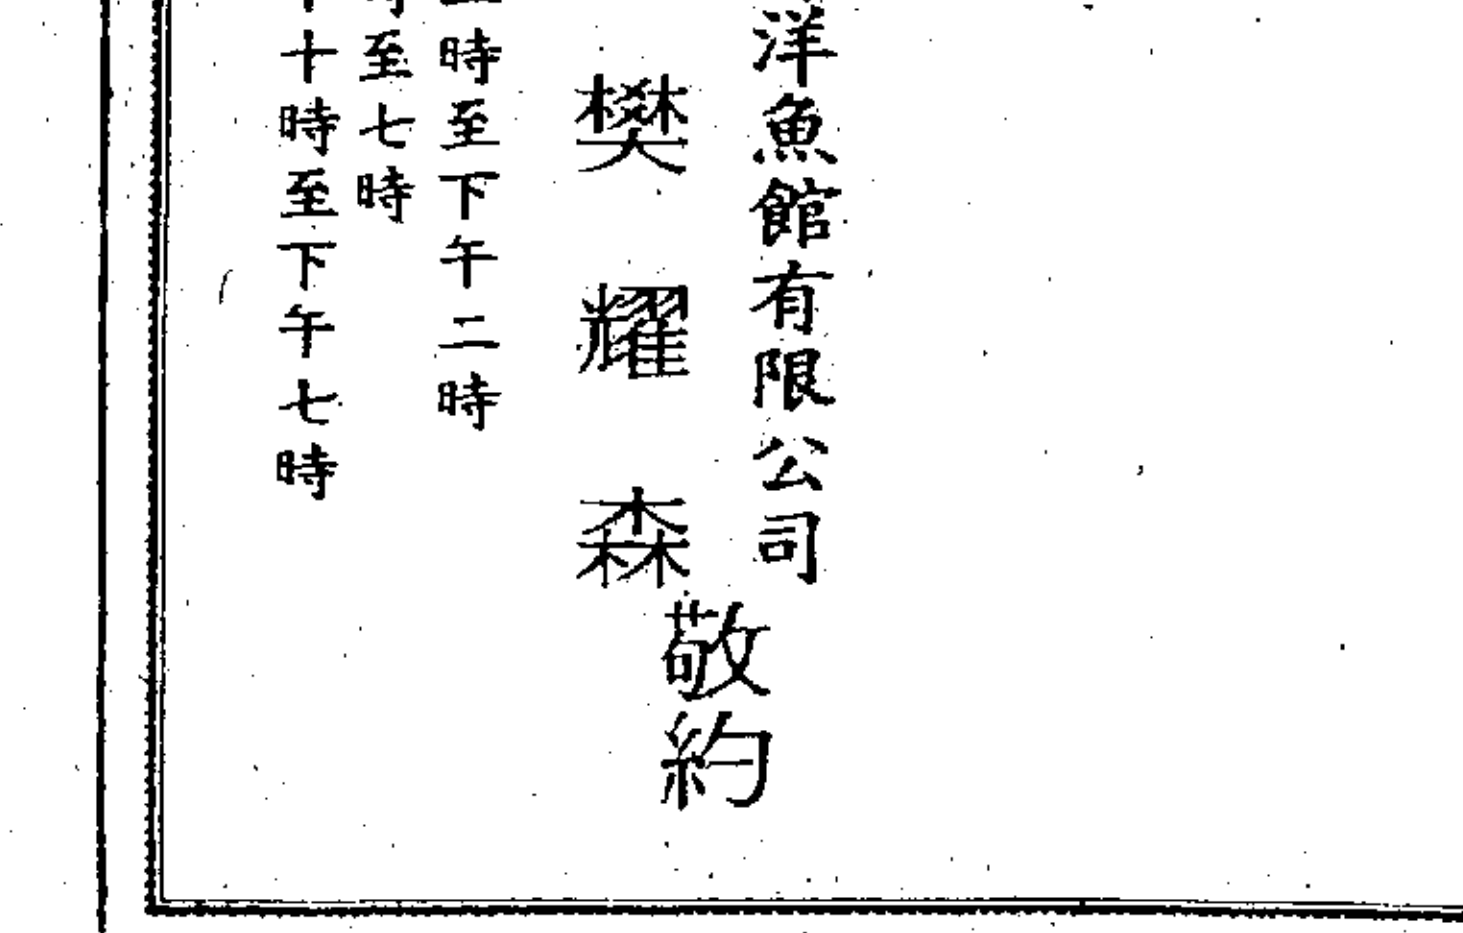 洋魚館有限公司
樊耀森
敬約
時至下午二時
至七時
十時至下午七時